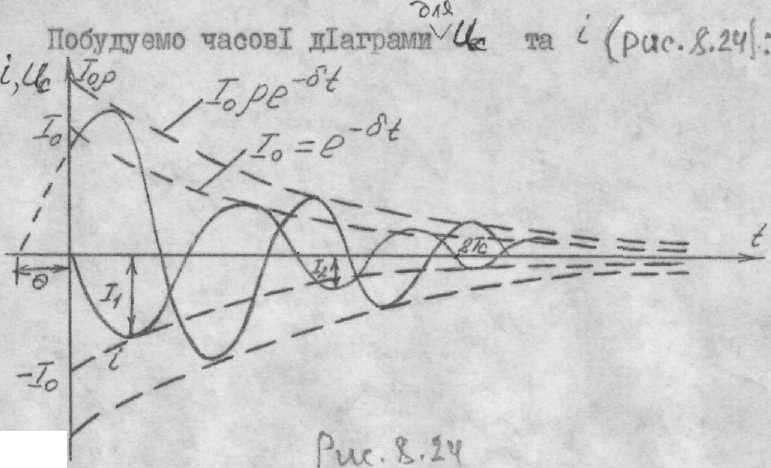 Побудуємо часові діаграми для Uc та i (рис. 8.24):
i, Uc
I₀ρ
I₀ρe^{-δt}
I₀
I₀ = e^{-δt}
t
2Tc
θ
I₁
I₂
i
-I₀
Рис. 8.24